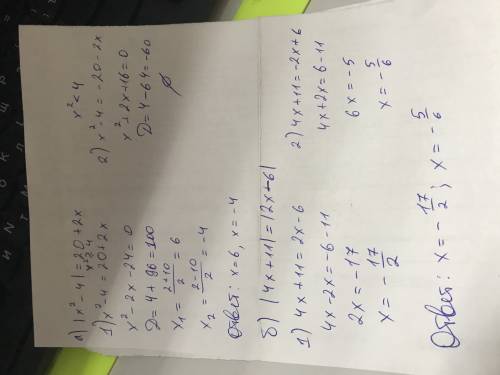 а) |x² - 4| = 20 + 2x
x² ≥ 4
1) x² - 4 = 20 + 2x
x² - 2x - 24 = 0
D = 4 + 96 = 100
x₁ = (2+10)/2 = 6
x₂ = (2-10)/2 = -4
x² < 4
2) x² - 4 = -20 - 2x
x² + 2x + 16 = 0
D = 4 - 64 = -60
∅
Ответ: x = 6, x = -4
б) |4x + 11| = |2x - 6|
1) 4x + 11 = 2x - 6
4x - 2x = -6 - 11
2x = -17
x = -17/2
2) 4x + 11 = -2x + 6
4x + 2x = 6 - 11
6x = -5
x = -5/6
Ответ: x = -17/2; x = -5/6